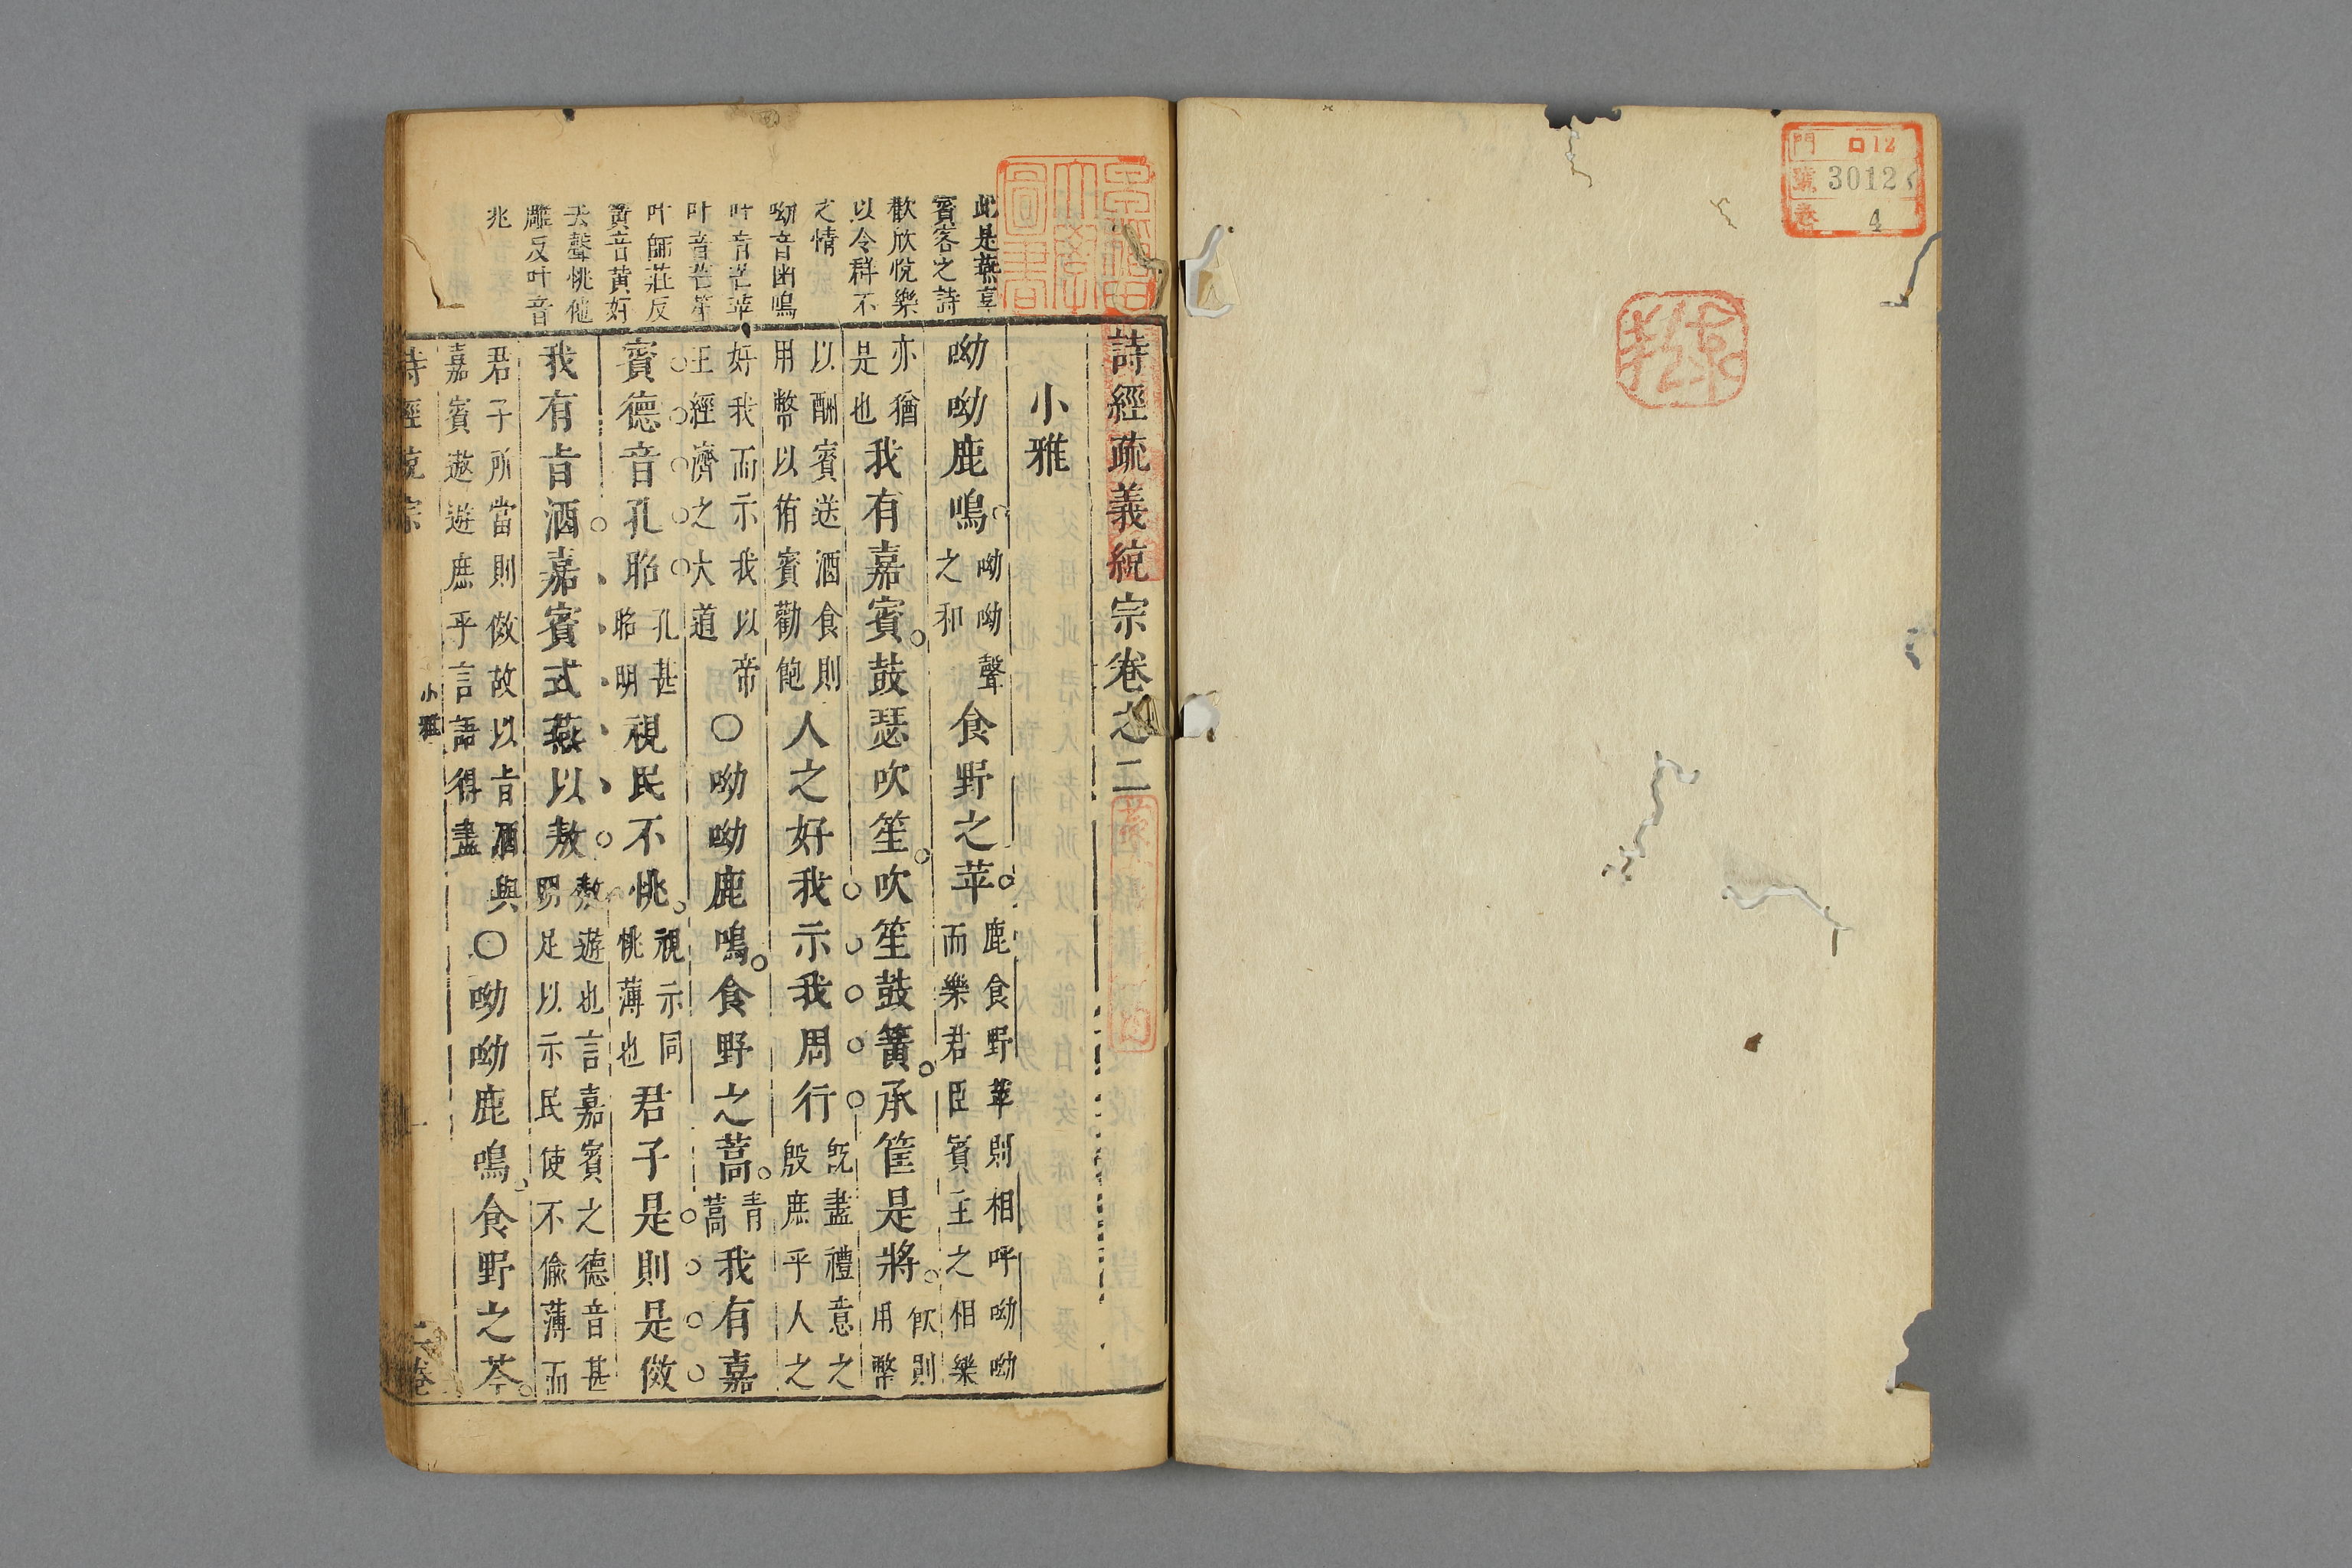 門 口12
號 30127
卷 4
詩經疏義統宗卷之二
小雅
呦呦鹿鳴呦呦聲之和食野之苹鹿食野苹則相呼呦呦而樂君臣賓主之相樂
亦猶是也我有嘉賓鼓瑟吹笙吹笙鼓簧承筐是將飲則用幣
以酬賓送酒食則用幣以侑賓勸飽人之好我示我周行既盡禮意之殷庶乎人之
好我而示我以帝王經濟之大道〇呦呦鹿鳴食野之蒿青蒿我有嘉
賓德音孔昭孔甚昭明視民不恌視示同恌薄也君子是則是傚
我有旨酒嘉賓式燕以敖敖遊也言嘉賓之德音甚昭足以示民使不偷薄而
君子所當則傚故以旨酒與嘉賓遨遊庶乎言語得盡〇呦呦鹿鳴食野之芩
詩經統宗 小雅 一 二卷
此是燕享
賓客之詩
歡欣悅樂
以令群不
之情
呦音幽鳴
叶音芒苹
叶音芒笙
叶師莊反
簧音黃好
去聲恌他
雕反叶音
兆